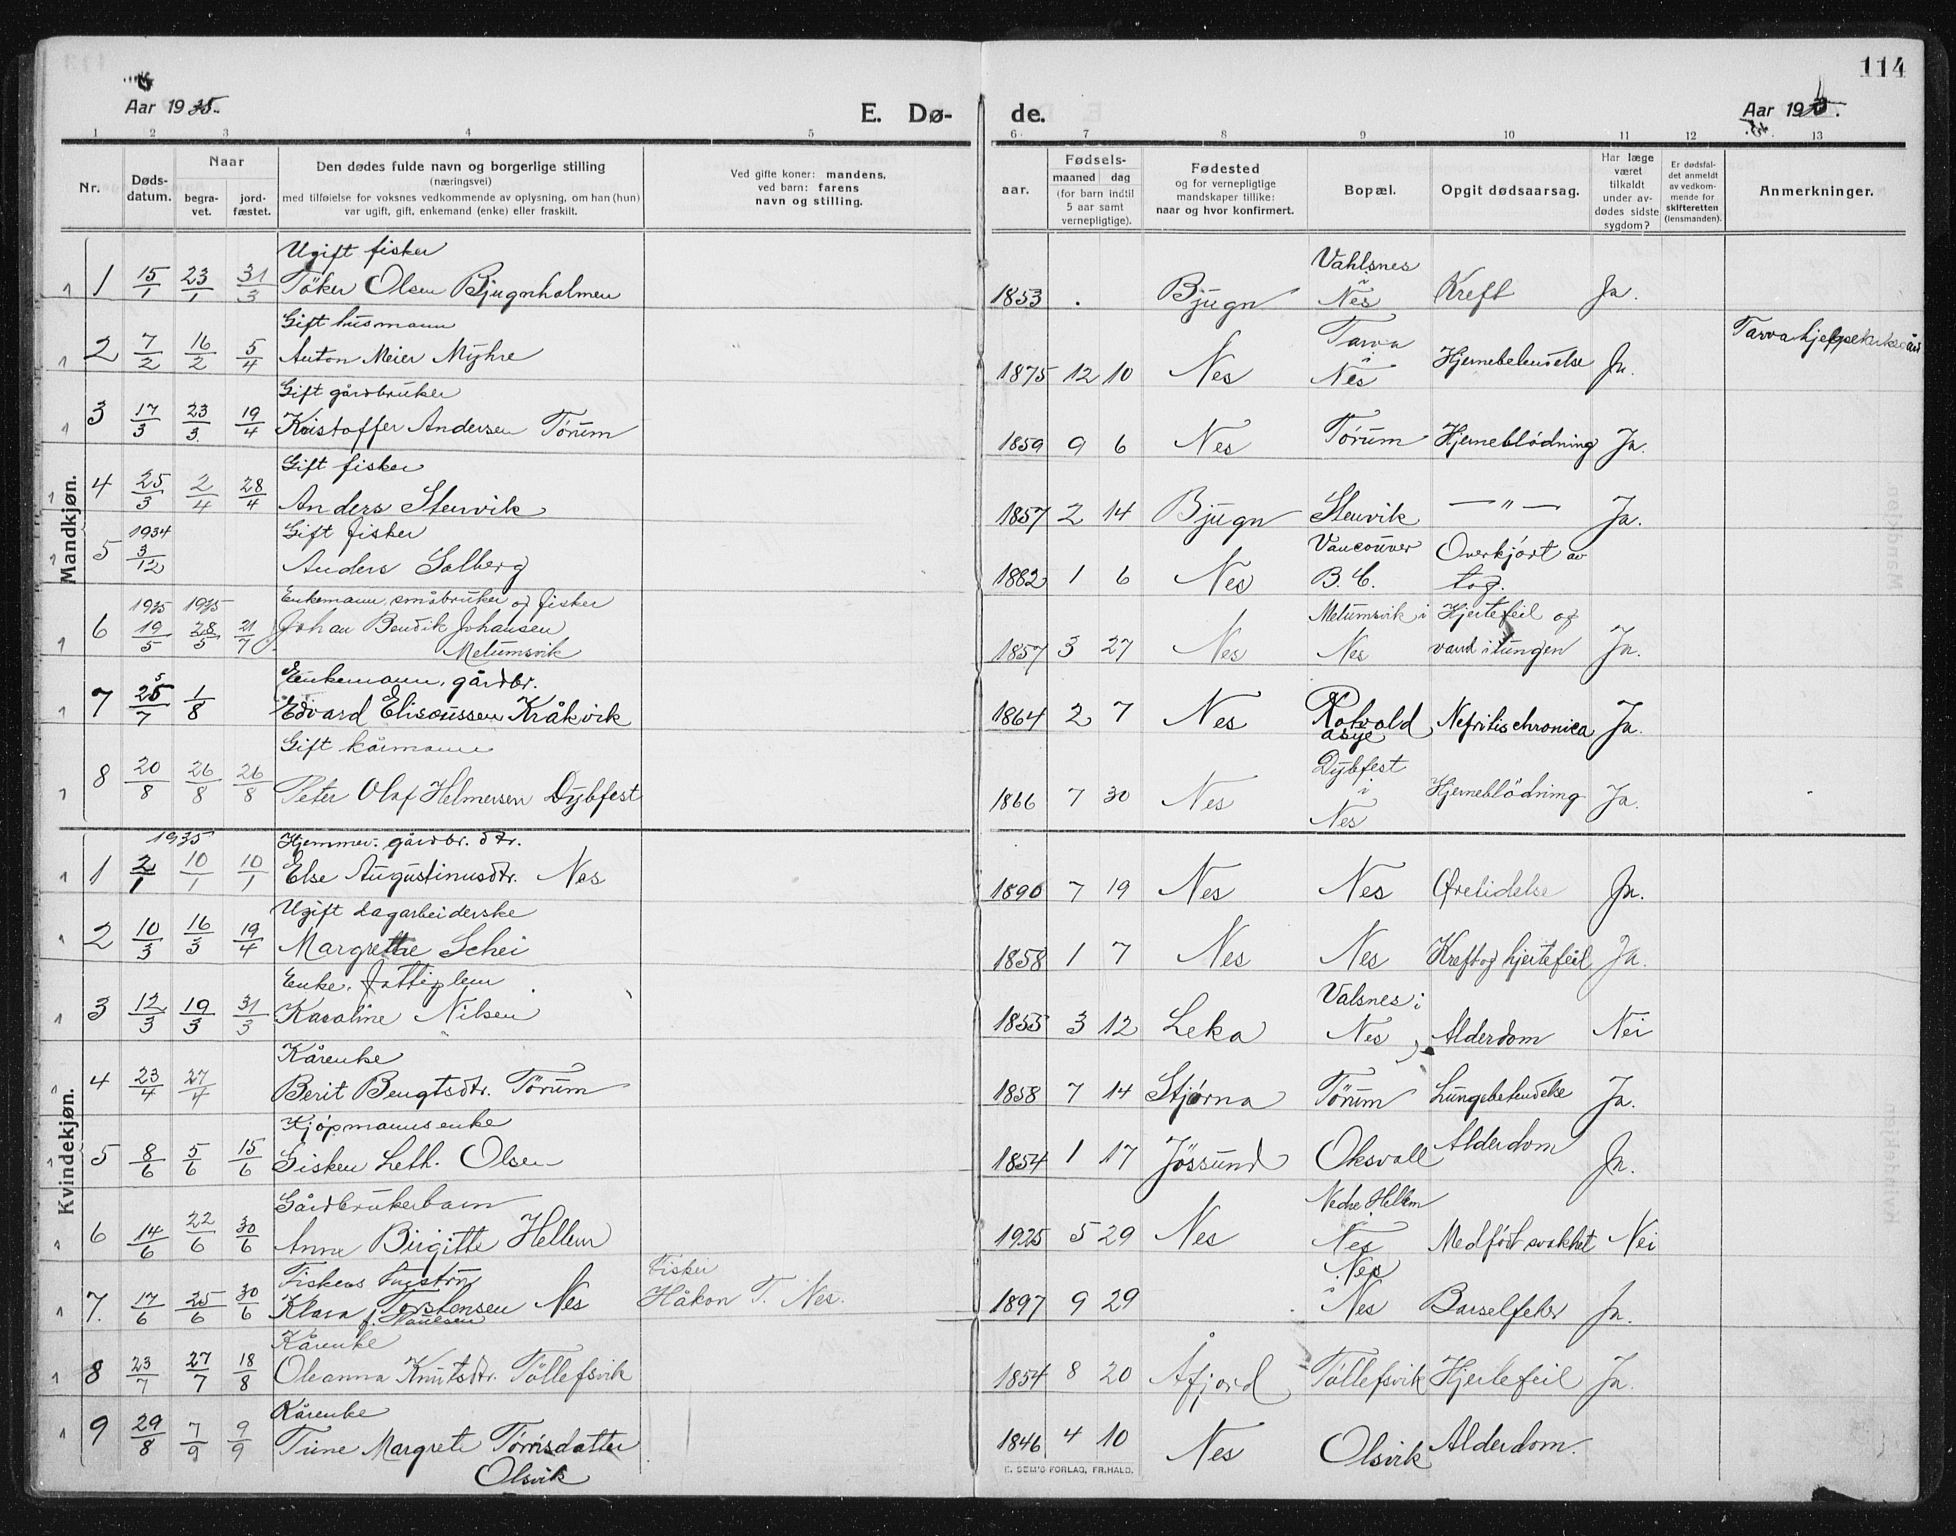 114
Aar 1935.
E. Dø-
de.
Aar 19
1 2 3 4 5 6 7 8 9 10 11 12 13
Nr.
Døds-
datum.
Naar
begra-
vet.
jord-
fæstet.
Den dødes fulde navn og borgerlige stilling
(næringsvei)
med tilføielse for voksnes vedkommende av oplysning, om han (hun)
var ugift, gift, enkemand (enke) eller fraskilt.
Ved gifte koner: mandens,
ved barn: farens
navn og stilling.
aar.
Fødsels-
maaned dag
(for barn indtil
5 aar samt
vernepligtige).
Fødested
og for vernepligtige
mandskaper tillike:
naar og hvor konfirmert.
Bopæl.
Opgit dødsaarsag.
Har læge
været
tilkaldt
under av-
dødes sidste
sygdom?
Er dødsfal-
det anmeldt
av vedkom-
mende for
skifteretten
(lensmanden).
Anmerkninger.
Mandkjøn.
Ugift fisker Vahlsnes
1 1 15/1 23/1 31/3 Töker Olsen Bjugnholmen 1853 . Bjugn i Nes Kreft Ja.
Gift husmann Tarva
1 2 7/2 16/2 5/4 Anton Meier Myhre 1875 12 10 Nes i Nes Hjernebetendelse Ja.
Gift gårdbruker
1 3 17/3 23/3 19/4 Kristoffer Andersen Törum 1859 9 6 Nes Törum Hjerneblödning Ja.
Gift fisker
1 4 25/3 2/4 28/4 Anders Stenvik 1857 2 14 Bjugn Stenvik — " — Ja.
1934 Gift fisker Vancouver Overkjört av
1 5 3/12 Anders Solberg 1882 1 6 Nes B.C. tog.
1935 1935 Enkemann, småbruker og fisker Melumsvik i Hjertefeil og
1 6 19/5 28/5 21/7 Johan Bendik Johansen 1857 3 27 Nes Nes vand i lungen Ja.
Melumsvik
Enkemann, gårdbr.
1 7 25/7 1/8 Edvard Eliseussen Kråkvik 1864 2 7 Nes Nefritis chronica Ja.
Gift kårmann Dybfest
1 8 20/8 26/8 26/8 Peter Olaf Helmersen Dybfest 1866 7 30 Nes i Nes Hjerneblödning Ja.
Kvindekjøn.
1935 Hjemmev. gårdbr. dtr.
1 1 2/1 10/1 10/1 Else Augustinusdtr. Nes 1890 7 19 Nes Nes Ørelidelse Ja.
Ugift dagarbeiderske
1 2 10/3 16/3 19/4 Margrethe Schei 1858 1 7 Nes Nes Kreft og hjertefeil Ja.
Enke. Fattiglem Valsnes i
1 3 12/3 19/3 31/3 Karoline Nilsen 1855 3 12 Leka Nes Alderdom Nei
Kårenke
4 23/4 27/4 Berit Bengtsdtr. Törum 1858 7 14 Stjørna Törum Lungebetendelse Ja.
Kjöpmannsenke
1 5 8/6 5/6 15/6 Gisken Leth. Olsen 1854 1 17 Jössund Oksvoll Alderdom Ja.
Gårdbrukerbarn Nedre Hellem
1 6 14/6 22/6 30/6 Anne Birgitte Hellem 1925 5 29 Nes Nes Medfödt svakhet Nei
Fisker Nes
1 7. 17/6 25/6 30/6 Klara Torstensen Nes Håkon T. Nes. 1897 9 29 i Nes Barselfeber Ja.
Kårenke
1 8 23/7 27/7 18/8 Oleanna Knutsdtr. Töllefsvik 1854 8 20 Åfjord Töllefsvik Hjertefeil Ja.
Kårenke
1 9 29/8 7/9 9/9 Trine Margrete Törrisdatter 1846 4 10 Nes Olsvik Alderdom.
Olsvik
E. SEM'S FORLAG, FR.HALD.